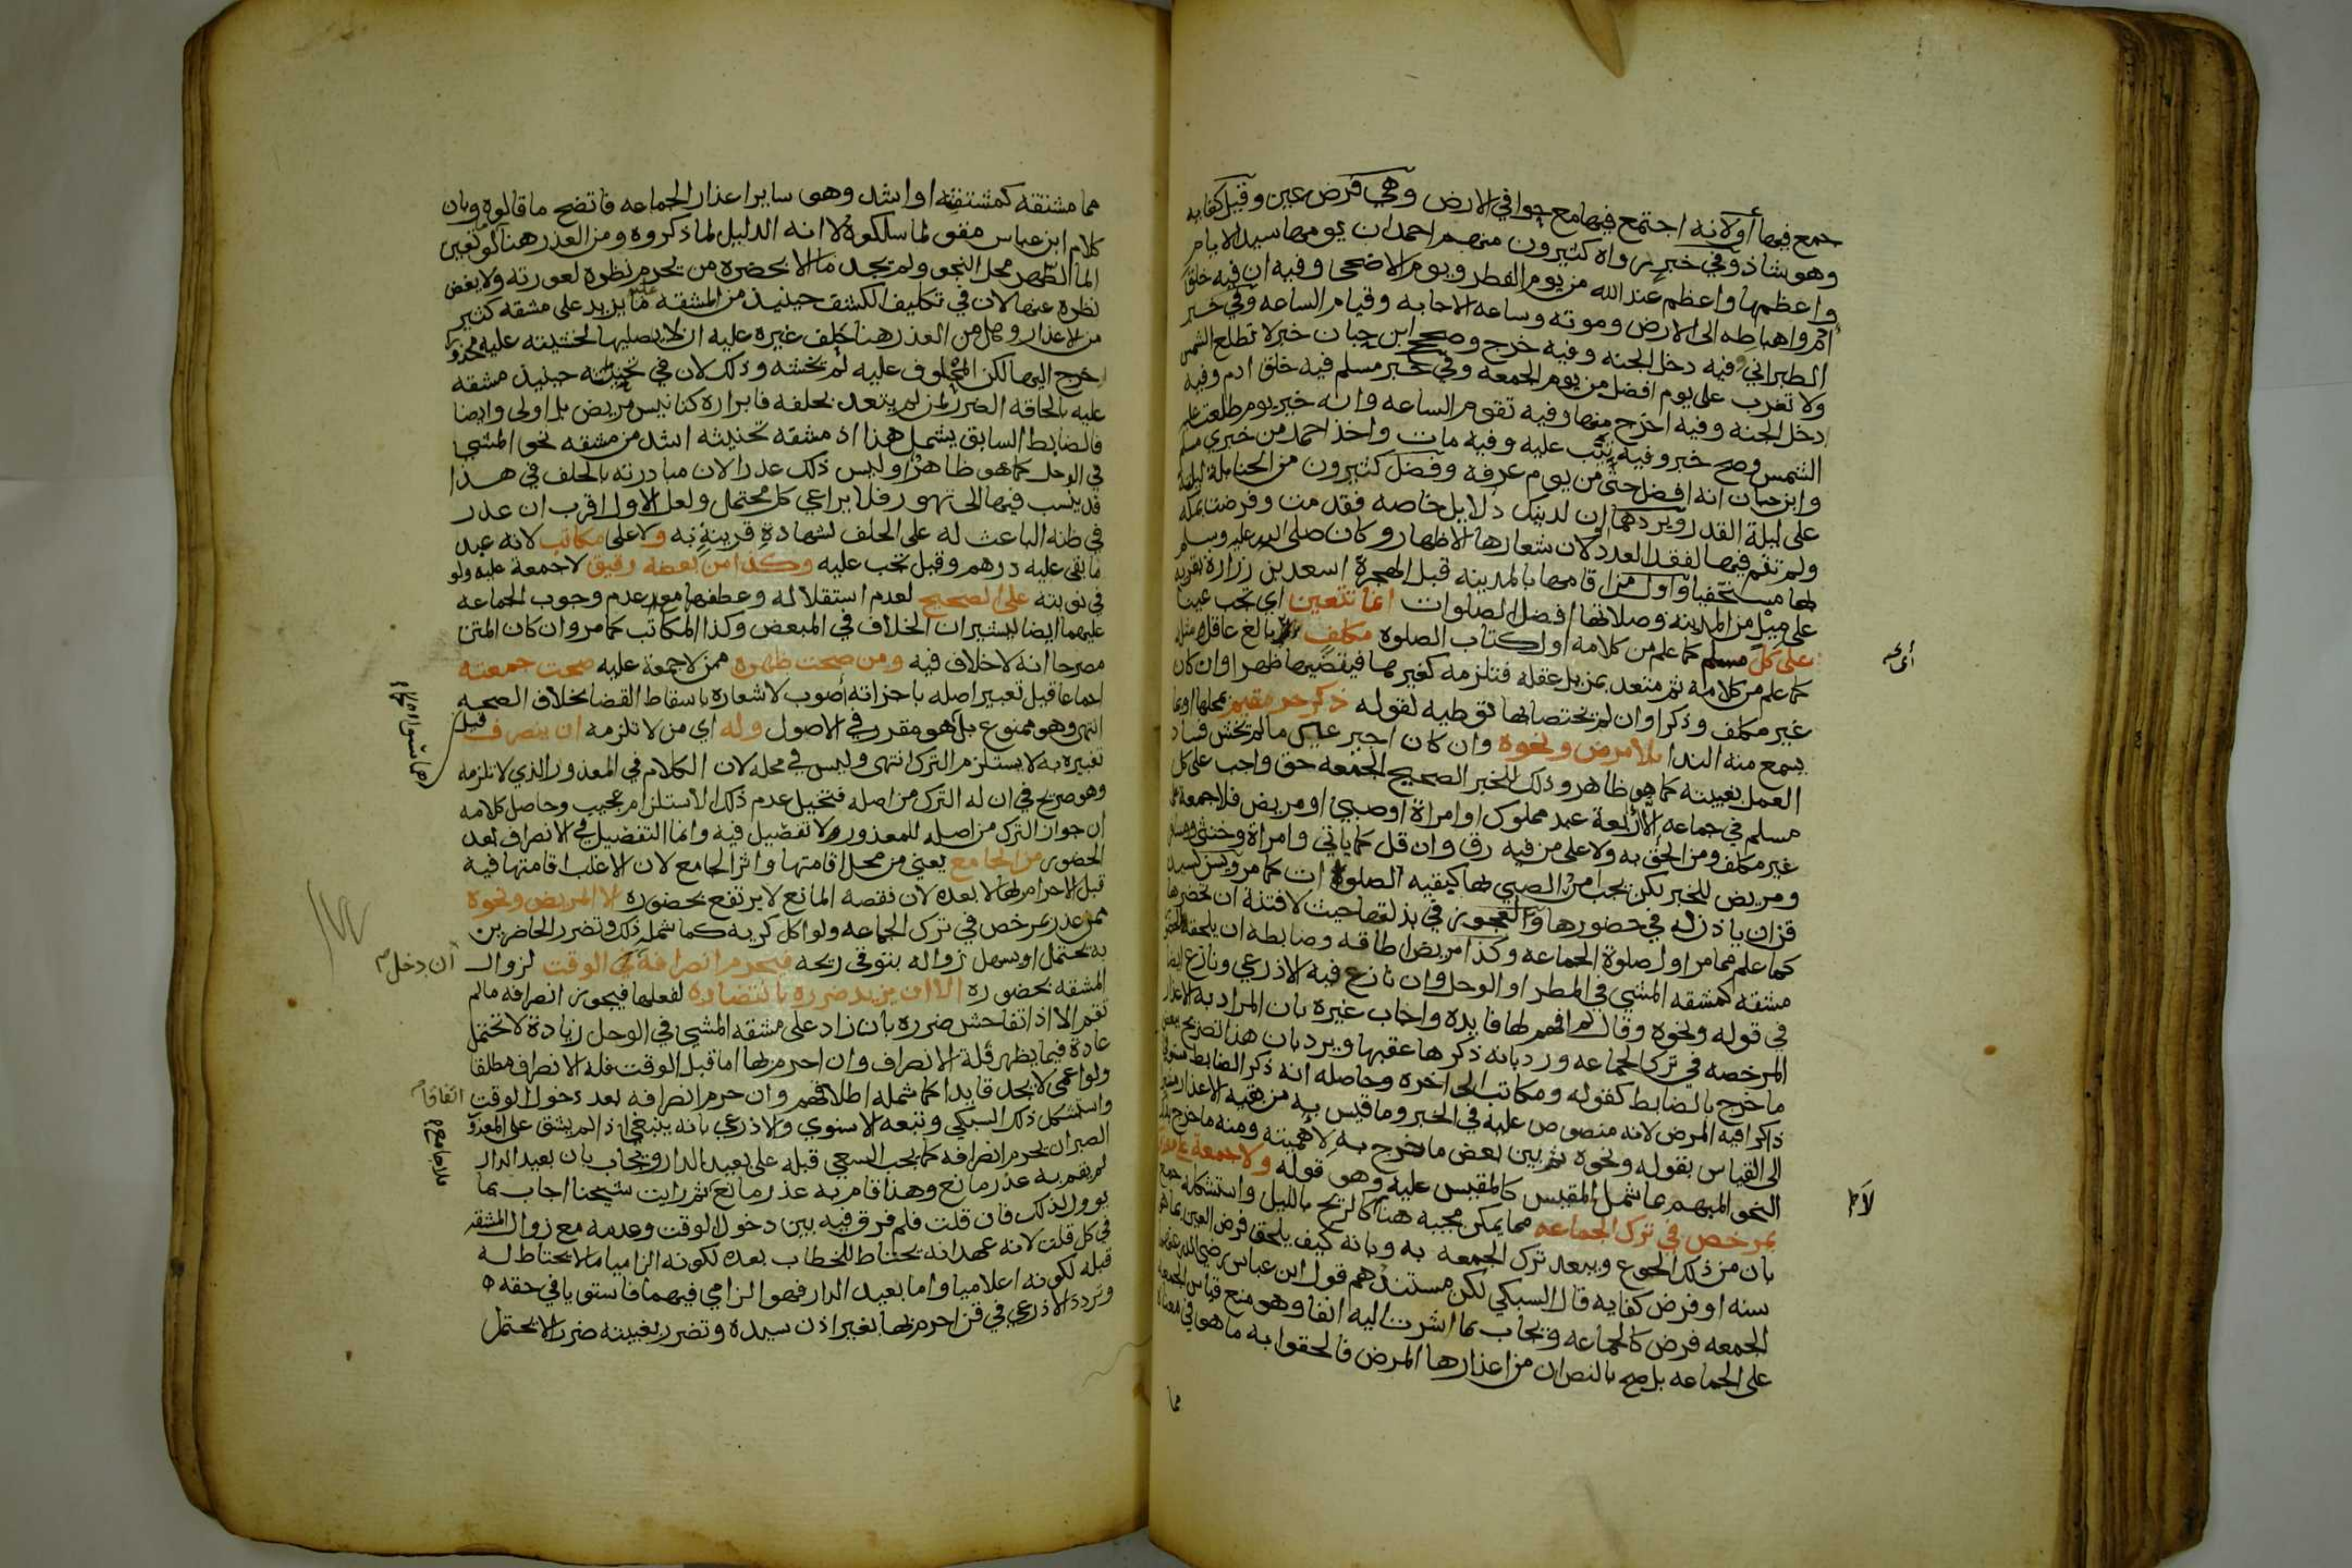 جمع فيها أولانه اجتمع فيها مع حوا في الارض وهي فرض عين وقيل كفايه
وهو شاذ وفي خبر رواه كثيرون منهم احمد ان يومها سيد الايام
واعظمها واعظم عند الله من يوم الفطر ويوم الاضحى وفيه ان فيه خلق
ادم واهباطه الى الارض وموته وساعه الاجابه وقيام الساعه وفي خبر
الطبراني وفيه دخل الجنه وفيه خرج وصحح ابن حبان خبر لا تطلع الشمس
ولا تغرب على يوم افضل من يوم الجمعه وفي خبر مسلم فيه خلق ادم وفيه
دخل الجنه وفيه اخرج منها وفيه تقوم الساعه وانه خير يوم طلعت عليه
الشمس وصح خبر وفيه تيب عليه وفيه مات واخذ احمد من خبري مسلم
وابن حبان انه افضل حتى من يوم عرفه وفضل كثيرون من الحنابله ليلته
على ليلة القدر ويردهما ان لذينك دلايل خاصه فقدمت وفرضت بمكه
ولم تقم فيها لفقد العدد او لان شعارها الاظهار وكان صلى الله عليه وسلم
بها مستخفيا واول من اقامها بالمدينه قبل الهجرة اسعد بن زرارة بقريه
على ميل من المدينه وصلاتها افضل الصلوات انما تتعين اي تجب عينا
على كل مسلم كما علم من كلامه اول كتاب الصلوة مكلف بالغ عاقل
كما علم من كلامه ثم متعد بمزيل عقله فتلزمه كغيرها فيقضيها ظهرا وان كان
غير مكلف وذكرا وان لم يختصا بها توطيه لقوله ذكر حر مقيم بمحلها او بما
يسمع منه الندا بلا مرض ونحوه وان كان اجير عين ما لم تخش فساد
العمل بغيبته كما هو ظاهر وذلك للخبر الصحيح الجمعه حق واجب على كل
مسلم في جماعه الا اربعة عبد مملوك او امراة او صبي او مريض فلا جمعة على
غير مكلف ومن الحق به ولا على من فيه رق وان قل كما ياتي وامراة وخنثى ومسافر
ومريض للخبر لكن يجب امر الصبي بها كبقيه الصلوات كما مر ويسن لسيد
قن ان ياذن له في حضورها والعجوز في بذلتها حيث لا فتنة ان تحضرها
كما علم مما مر اول صلوة الجماعه وكذا مريض اطاقه وضابطه ان يلحقه
مشقه كمشقه المشي في المطر او الوحل وان نازع فيه الاذرعي ونازع ايضا
في قوله ونحوه وقال لم افهم لها فايده واجاب غيره بان المراد به الاعذار
المرخصه في ترك الجماعه ورد بانه ذكرها عقبها ويرد بان هذا تصريح ببعض
ما خرج بالضابط كقوله ومكاتب الى اخره وحاصله انه ذكر الضابط مستوفى
ذاكرا فيه المرض لانه منصوص عليه في الخبر وما قيس به من بقيه الاعذار مشيرا
الى القياس بقوله ونحوه ثم بين بعض ما خرج به لاهميته ومنه ما خرج بذلك
النحو المبهم مما شمل المقيس كالمقيس عليه وهو قوله ولا جمعة على معذور
بمرخص في ترك الجماعه مما يمكن مجيه هنا كالريح بالليل واستشكله جمع
بان من ذلك الجوع ويبعد ترك الجمعه به وبانه كيف يلحق فرض العين بما هو
سنه او فرض كفايه قال السبكي لكن مستندهم قول ابن عباس رضي الله عنهما
الجمعه فرض كالجماعه ويجاب بما اشرت اليه انفا وهو منع قياس الجمعه
على الجماعه بل صح بالنص ان من اعذارها المرض فالحقوا به ما هو في معناه
مما
لا
مما مشقته كمشقته او اشد وهو ساير اعذار الجماعه فاتضح ما قالوه وبان
كلام ابن عباس مقو لما سلكوه لا انه الدليل لما ذكروه ومن العذر هنا كما لو تعين
الما لطهر محل النجو ولم يجد ما الا بحضرة من يحرم نظره لعورته ولا يغض
نظره عنها لان في تكليف الكشف حينيذ من المشقه ما يزيد على مشقه كثير
من الاعذار وهل من العذر هنا حلف غيره عليه ان لا يصليها لخشيته عليه محذورا لو
خرج اليها لكن المحلوف عليه لم يخشه وذلك لان في تحنيثه حينيذ مشقه
عليه بالحاقه الضرر لمن لم يتعد بحلفه فابراره كتانيس مريض بل اولى وايضا
فالضابط السابق يشمل هذا اذ مشقه تحنيثه اشد من مشقه نحو المشي
في الوحل كما هو ظاهر او ليس ذلك عذرا لان مبادرته بالحلف في هذا
قد ينسب فيها الى تهور فلا يراعي كل محتمل ولعل الاول اقرب ان عذر
في ظنه الباعث له على الحلف لشهادة قرينة به ولا على مكاتب لانه عبد
ما بقي عليه درهم وقيل تجب عليه وكذا من بعضه رقيق لا جمعة عليه ولو
في نوبته على الصحيح لعدم استقلاله وعطفها مع عدم وجوب الجماعه
عليهما ايضا ليشير ان الخلاف في المبعض وكذا المكاتب كما مر وان كان المتن
مصرحا انه لا خلاف فيه ومن صحت ظهره ممن لا جمعة عليه صحت جمعته
اجماعا قيل تعبير اصله باجزاته أصوب لاشعاره باسقاط القضا بخلاف الصحه
انتهى وهو ممنوع بل هو مقرر في الاصول وله اي من لا تلزمه ان ينصرف قيل
تعبيره به لا يستلزم الترك انتهى وليس في محله لان الكلام في المعذور الذي لا تلزمه
وهو صريح في ان له الترك من اصله فتخيل عدم ذلك الاستلزام عجيب وحاصل كلامه
ان جواز الترك من اصله للمعذور ولا تفضيل فيه وانما التفضيل في الانصراف بعد
الحضور من الجامع يعني من محل اقامتها واثر الجامع لان الاغلب اقامتها فيه
قبل الاحرام بها لا بعده لان نقصه المانع لا يرتفع بحضوره الا المريض ونحوه
ممن عذر بمرخص في ترك الجماعه ولو اكل كريه كما شمله ذلك وتضرر الحاضرين
به يحتمل او يسهل زواله بتوقي ريحه فيحرم انصرافه في الوقت لزوال
ان دخل
المشقه بحضوره الا ان يزيد ضرره بانتضاره لفعلها فيجوز انصرافه مالم
تقم الا اذا تفاحش ضرره بان زاد على مشقه المشي في الوحل زيادة لا تحتمل
عادة فيما يظهر فله الانصراف وان احرم بها اما قبل الوقت فله الانصراف مطلقا
ولو اعمى لا يجد قايدا كما شمله اطلاقهم وان حرم انصرافه بعد دخول الوقت
اتفاقا
واستشكل ذلك السبكي وتبعه الاسنوي والاذرعي بانه ينبغي اذا لم يشق على المعذور
الصبر ان يحرم انصرافه كما يجب السعي قبله على بعيد الدار ويجاب بان بعيد الدار
لم يقم به عذر مانع وهذا قام به عذر مانع ثم رايت شيخنا اجاب بما
يوول لذلك فان قلت فلم فرق فيه بين دخول الوقت وعدمه مع زوال المشقه
في كل قلت لانه عهد انه يحتاط للخطاب بعده لكونه الزاميا ما لا يحتاط له
قبله لكونه اعلاميا واما بعيد الدار فهو الزامي فيهما فاستويا في حقه
وتردد الاذرعي في قن احرم بها بغير اذن سيده وتضرر بغيبته ضررا لا يحتمل